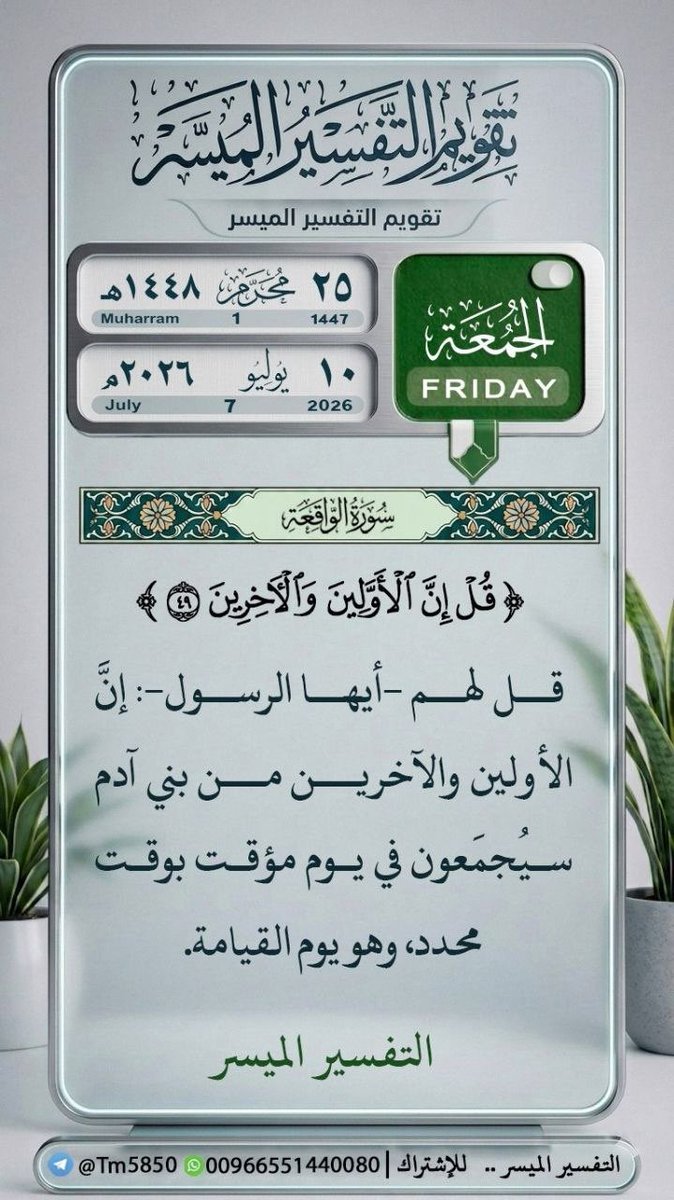 تقويم التَّفْسِيرُ المُيسَّر
تقويم التفسير الميسر
٢٥ مُحَرَّم ١٤٤٨هـ
Muharram 1 1447
الجُمُعَة
FRIDAY
١٠ يُوليُو ٢٠٢٦م
July 7 2026
سُورَةُ الوَاقِعَةِ
﴿ قُلْ إِنَّ ٱلْأَوَّلِينَ وَٱلْـَٔاخِرِينَ ٤٩ ﴾
قـــل لهـــم -أيهـــا الرســـول-: إنَّ
الأولين والآخريـــن مـــن بني آدم
سيُجمَعون في يـوم مؤقت بوقت
محدد، وهو يوم القيامة.
التفسير الميسر
التفسير الميسر .. للإشتراك | 00966551440080 @Tm5850